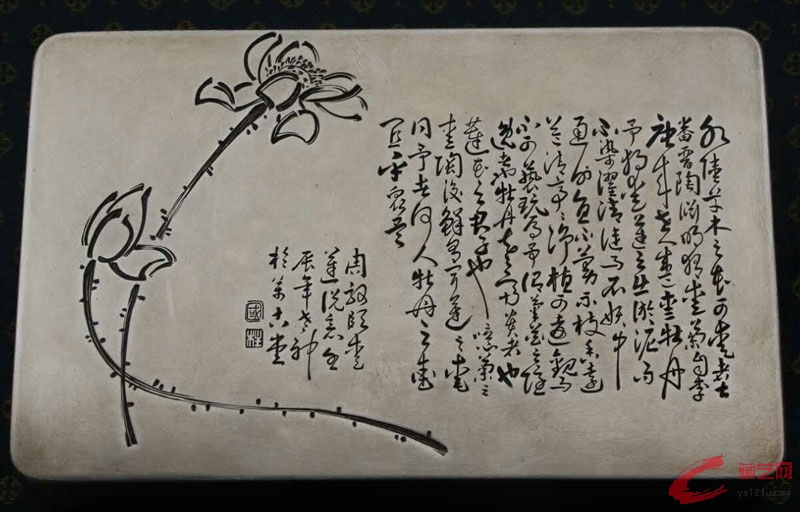 水陸草木之花可愛者甚
蕃晉陶淵明獨愛菊自李
唐來世人甚愛牡丹
予獨愛蓮之出淤泥而
不染濯清漣而不妖中
通外直不蔓不枝香遠
益清亭亭淨植可遠觀而
不可褻玩焉予謂菊花之隱
逸者牡丹花之富貴者也
蓮花之君子也噫菊之
愛陶後鮮有聞蓮之愛
同予者何人牡丹之愛
宜乎眾矣
周敦頤愛
蓮說
辰年
於
國
藏艺网
ys121.com